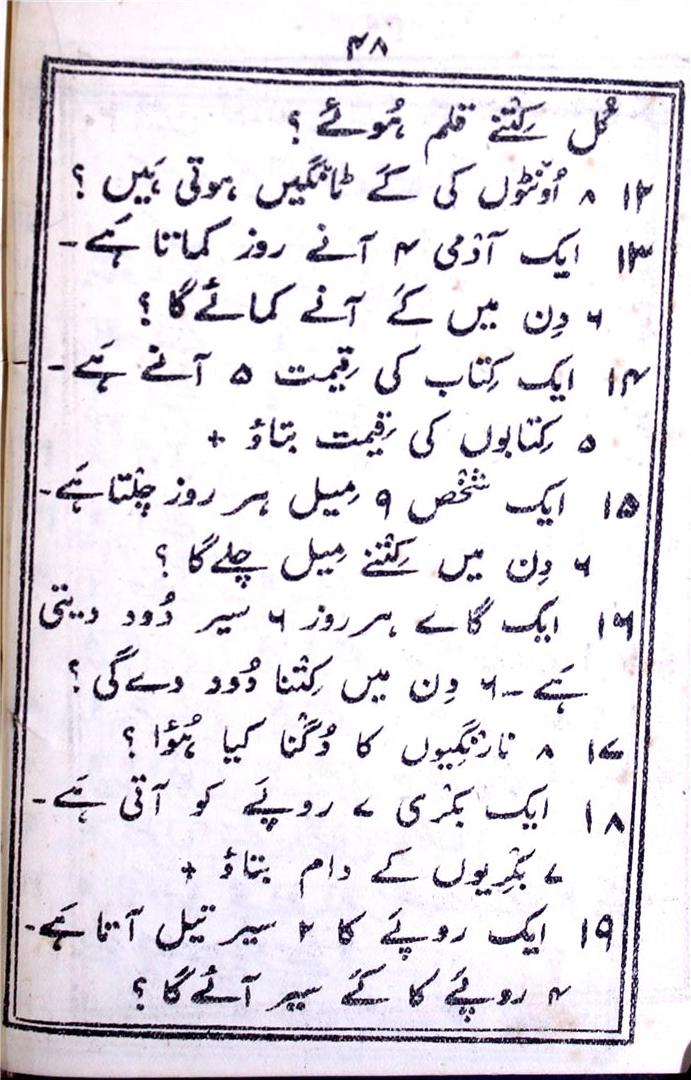 ۴۸
کُل کِتْنے قلم ہُوئے ؟
۱۲ ۸ اُونْٹوں کی کَے ٹانْگیں ہوتی ہَیں ؟
۱۳ ایک آدْمی ۴ آنے روز کماتا ہَے ۔
۶ دِن میں کَے آنے کمائے گا ؟
۱۴ ایک کِتاب کی قِیمت ۵ آنے ہَے ۔
۵ کِتابوں کی قِیمت بتاؤ +
۱۵ ایک شخْص ۹ مِیل ہر روز چلْتا ہَے ۔
۶ دِن میں کِتْنے مِیل چلے گا ؟
۱۶ ایک گاے ہر روز ۶ سیر دُود دیتی
ہَے ۔ ۶ دِن میں کِتْنا دُود دے گی ؟
۱۷ ۸ نارنْگیوں کا دُگْنا کیا ہُؤا ؟
۱۸ ایک بکْری ۷ روپَے کو آتی ہَے ۔
۷ بکْریوں کے دام بتاؤ +
۱۹ ایک روپَے کا ۲ سیر تیل آتا ہَے ۔
۴ روپَے کا کَے سیر آئے گا ؟